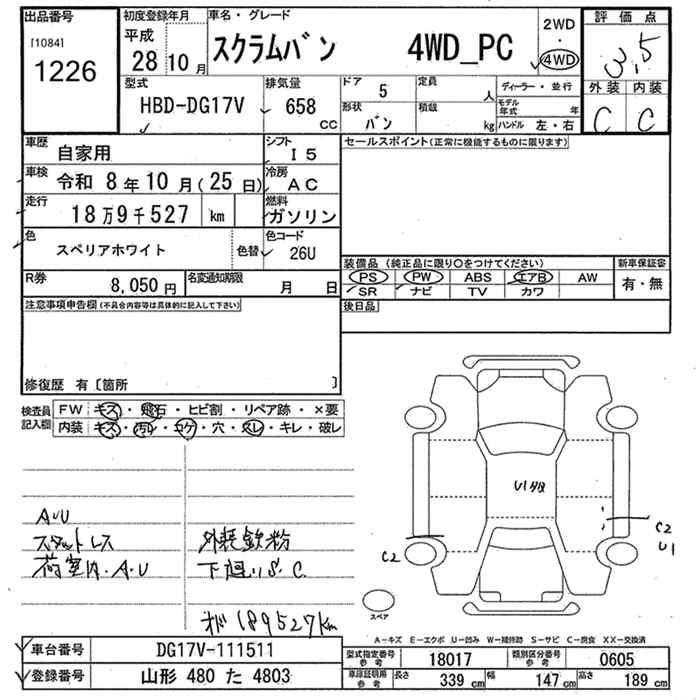 出品番号
[1084]
1226
初度登録年月
平成
28年10月
車名・グレード
スクラムバン 4WD_PC
2WD
・
4WD
評価点
3.5
外装 内装
C C
型式
HBD-DG17V
排気量
658
CC
ドア
5
形状
バン
定員
人
積載
kg
ディーラー・並行
モデル年式 年
ハンドル 左・右
車歴
自家用
シフト
I5
車検 令和 8年10月(25日)
冷房
AC
走行
18万9千527 km
燃料
ガソリン
色
スペリアホワイト
色替
色コード
26U
R券
8,050円
名変通知期限
月 日
セールスポイント(正常に機能するものに限ります)
装備品(純正品に限り○をつけてください)
PS PW ABS エアB AW
SR ナビ TV カワ
新車保証書
有・無
後日品
注意事項申告欄(不具合内容等は具体的に記入して下さい)
修復歴 有〔箇所 〕
検査員記入欄
FW キズ・飛石・ヒビ割・リペア跡・×要
内装 キズ・汚レ・コゲ・穴・スレ・キレ・破レ
A・U
スタットレス
荷室内.A.U
外装鉄粉
下廻りS.C.
メーター 189527km
U1
C2
C2
U1
スペア
A-キズ E-エクボ U-凹み W-補修跡 S-サビ C-腐食 XX-交換済
車台番号 DG17V-111511
登録番号 山形 480 た 4803
型式指定番号 参考 18017
類別区分番号 参考 0605
車庫証明用 参考 長さ 339 cm 幅 147 cm 高さ 189 cm